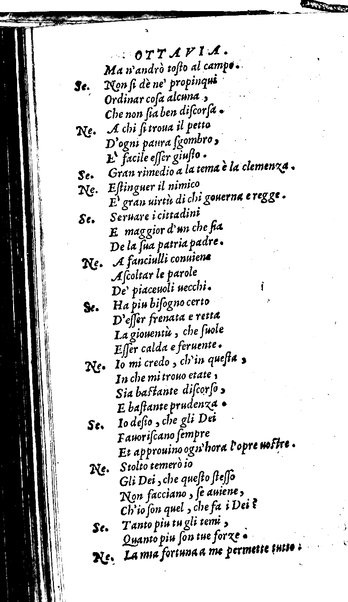 OTTAVIA.
Ma n'andrò tosto al campo.
Se. Non si dè ne' propinqui
Ordinar cosa alcuna,
Che non sia ben discorsa.
Ne. A chi si troua il petto
D'ogni paura sgombro,
E' facile esser giusto.
Se. Gran rimedio a la tema è la clemenza.
Ne. Estinguer il nimico
E' gran uirtù di chi gouerna e regge.
Se. Seruare i cittadini
E maggior d'un che sia
De la sua patria padre.
Ne. A fanciulli conuiene
Ascoltar le parole
De' piaceuoli uecchi.
Se. Ha piu bisogno certo
D'esser frenata e retta
La giouentù, che suole
Esser calda e feruente.
Ne. Io mi credo, ch'in questa,
In che mi trouo etate,
Sia bastante discorso,
E bastante prudenza.
Se. Io desio, che gli Dei
Fauoriscano sempre
Et approuino ogn'hora l'opre uostre.
Ne. Stolto temerò io
Gli Dei, che questo stesso
Non facciano, se auiene,
Ch'io son quel, che fa i Dei?
Se. Tanto piu tu gli temi,
Quanto piu son tue forze.
Ne. La mia fortuna a me permette tutto.